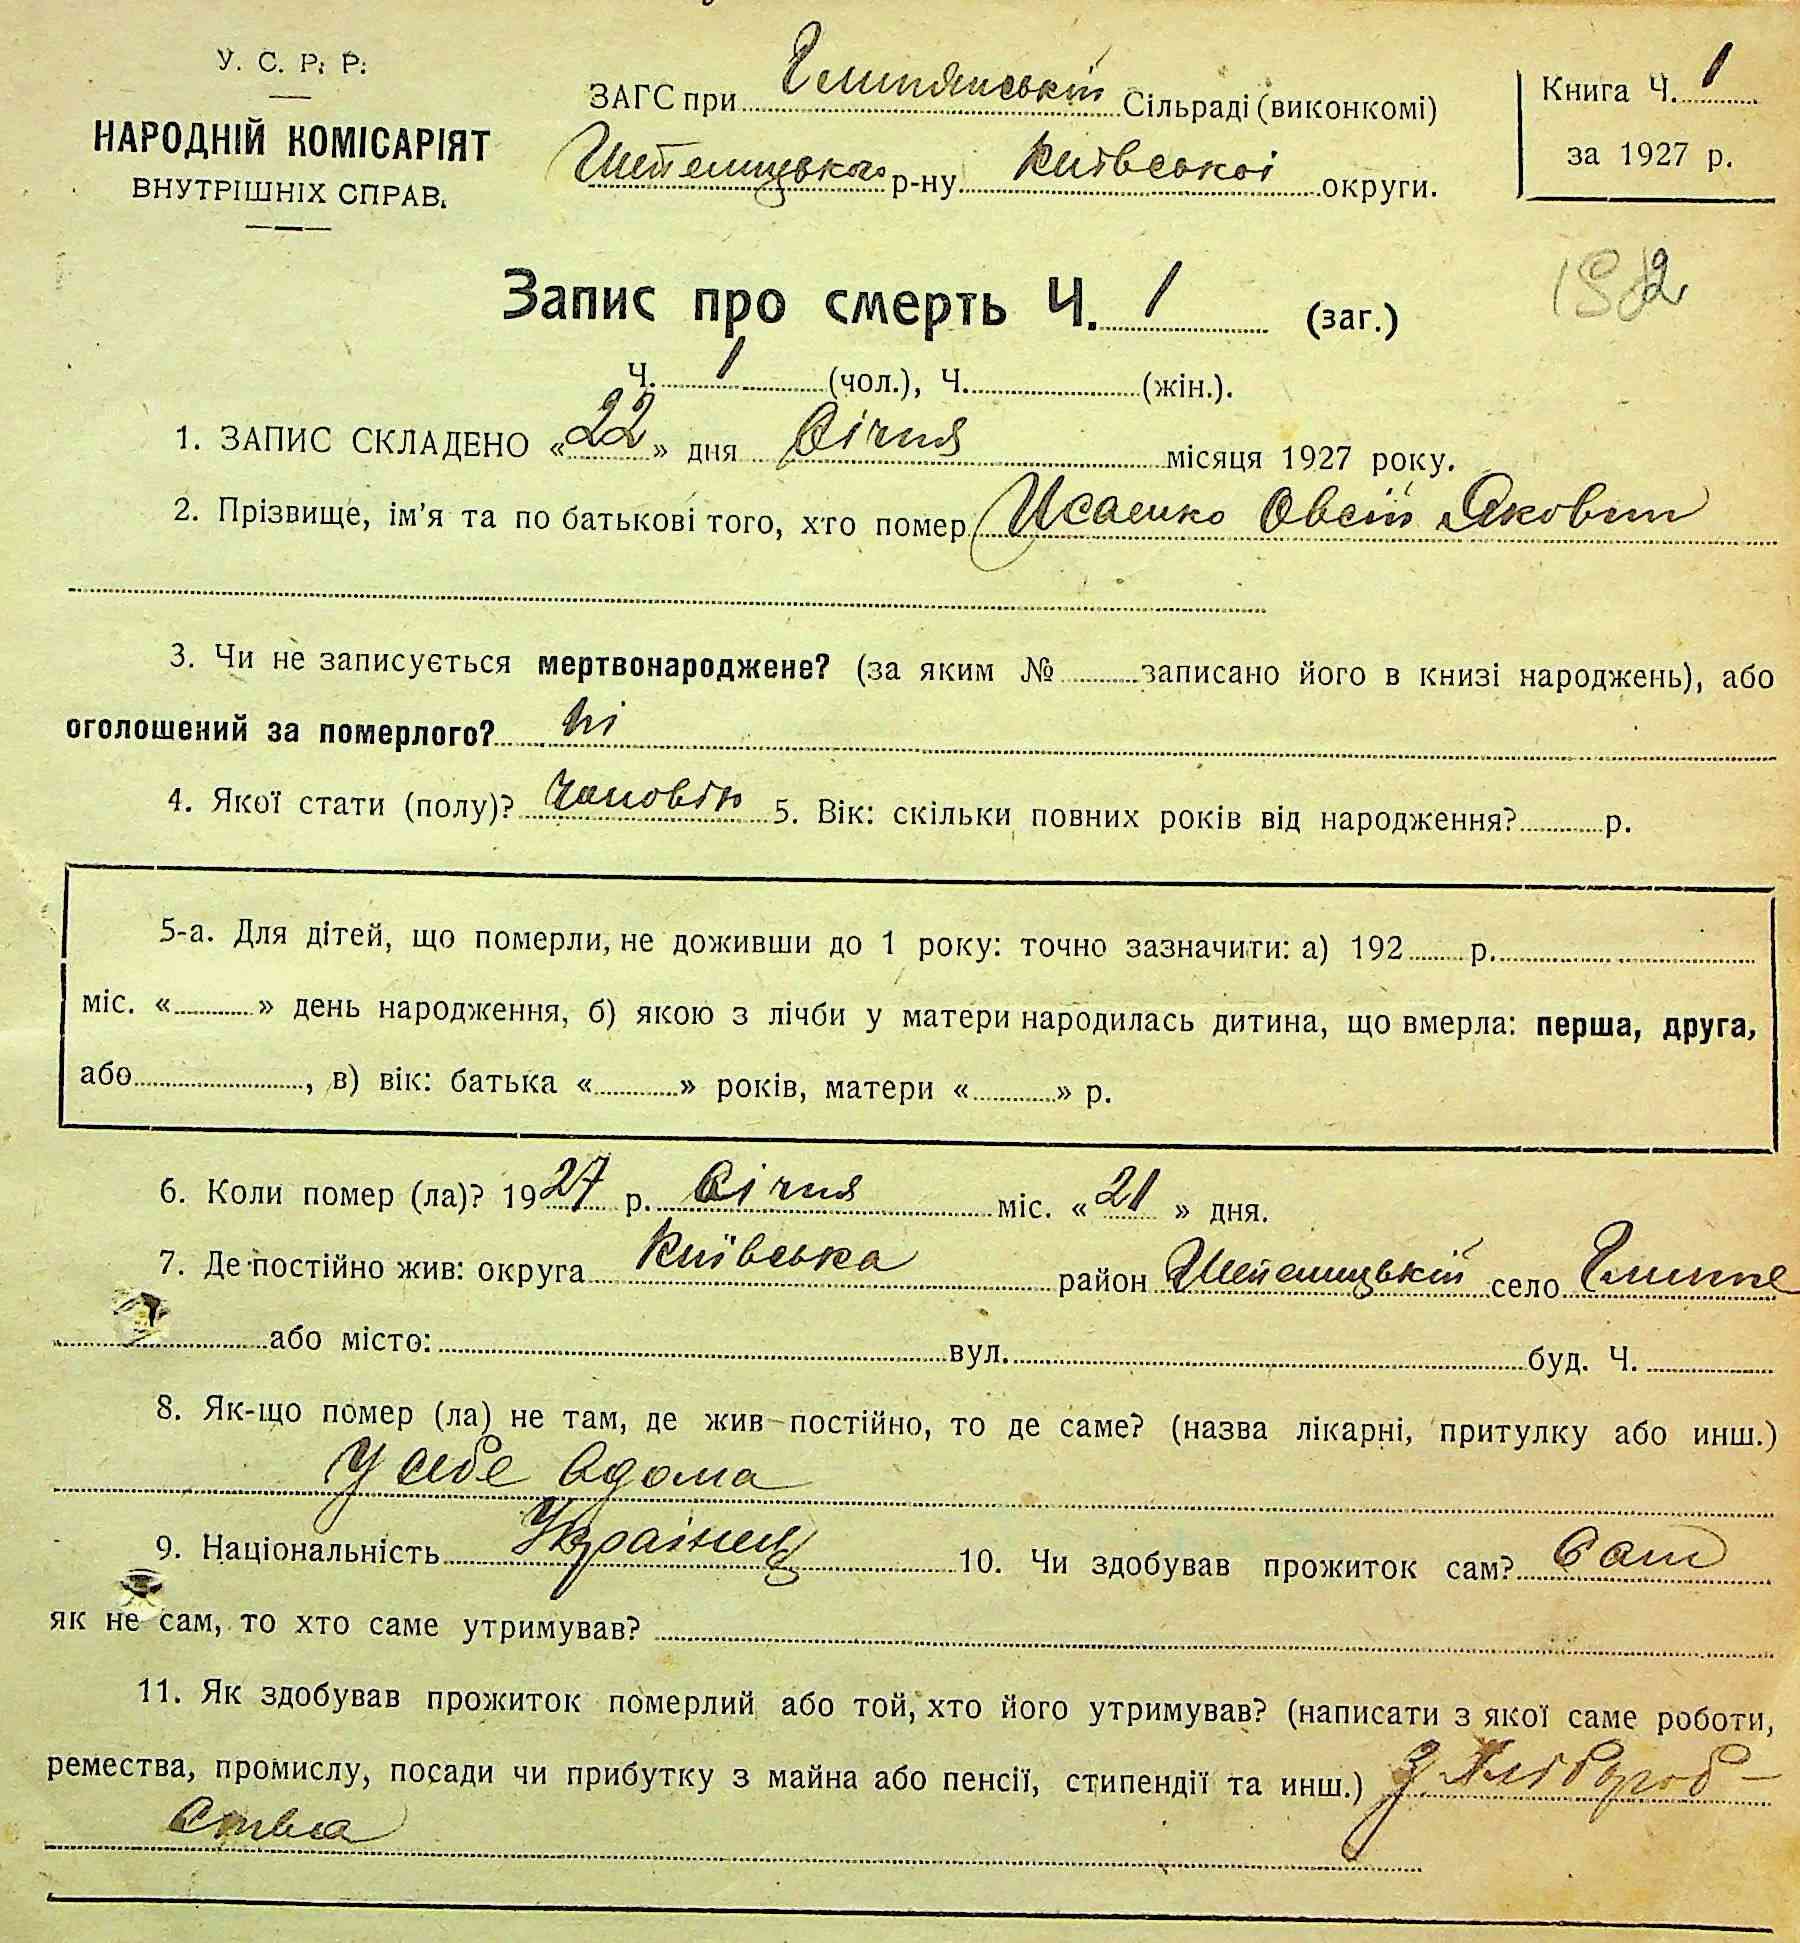 У. С. Р. Р.
НАРОДНІЙ КОМІСАРІЯТ
ВНУТРІШНІХ СПРАВ.
ЗАГС при Глинянській Сільраді (виконкомі)
Шепелицького р-ну Київської округи.
Книга Ч. 1
за 1927 р.
Запис про смерть Ч. 1 (заг.)
Ч. 1 (чол.), Ч. (жін.).
1. ЗАПИС СКЛАДЕНО «22» дня Січня місяця 1927 року.
2. Прізвище, ім'я та по батькові того, хто помер Исаенко Овсій Якович
3. Чи не записується мертвонароджене? (за яким № записано його в книзі народжень), або
оголошений за померлого? ні
4. Якої стати (полу)? 5. Вік: скільки повних років від народження? р.
5-а. Для дітей, що померли, не доживши до 1 року: точно зазначити: а) 192 р.
міс. « » день народження, б) якою з лічби у матери народилась дитина, що вмерла: перша, друга,
або , в) вік: батька « » років, матери « » р.
6. Коли помер (ла)? 1927 р. Січня міс. «21» дня.
7. Де постійно жив: округа Київська район Шепелицькій село
або місто: вул. буд. Ч.
8. Як-що помер (ла) не там, де жив постійно, то де саме? (назва лікарні, притулку або инш.)
У себе вдома
9. Національність Українец 10. Чи здобував прожиток сам? Сам
як не сам, то хто саме утримував?
11. Як здобував прожиток померлий або той, хто його утримував? (написати з якої саме роботи,
ремества, промислу, посади чи прибутку з майна або пенсії, стипендії та инш.) З Хлібороб-
ства